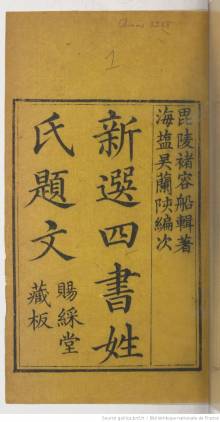 Chinois 3265
1
毘陵褚容船輯著
海塩吳蘭陔編次
新選四書姓
氏題文
賜綵堂
藏板
Source gallica.bnf.fr / Bibliothèque nationale de France